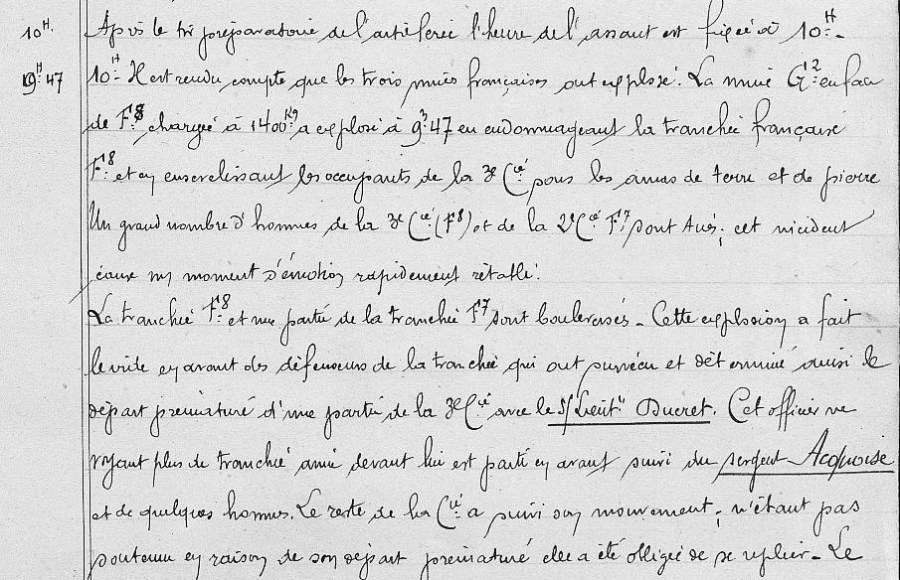 10H. Après le tir préparatoire de l'artillerie l'heure de l'assaut est fixée à 10H.-
9H.47 10H- Il est rendu compte que les trois mines françaises ont explosé. La mine G12 en face
de F8 chargée à 1400Kg a explosé à 9h47 en endommageant la tranchée française
F8 et en ensevelissant les occupants de la 3e Cie sous les amas de terre et de pierre
Un grand nombre d'hommes de la 3e Cie (F8) et de la 2e Cie F7 sont tués; cet incident
cause un moment d'émotion rapidement rétabli.
La tranchée F8 et une partie de la tranchée F7 sont bouleversés - Cette explosion a fait
le vide en avant des défenseurs de la tranchée qui ont survécu et déterminé aussi le
départ prématuré d'une partie de la 3e Cie avec le S/Lieutt Ducret. Cet officier ne
voyant plus de tranchée amie devant lui est parti en avant suivi du sergent Acquoise
et de quelques hommes. Le reste de la Cie a suivi son mouvement; n'étant pas
soutenu en raison de son départ prématuré elle a été obligée de se replier - Le